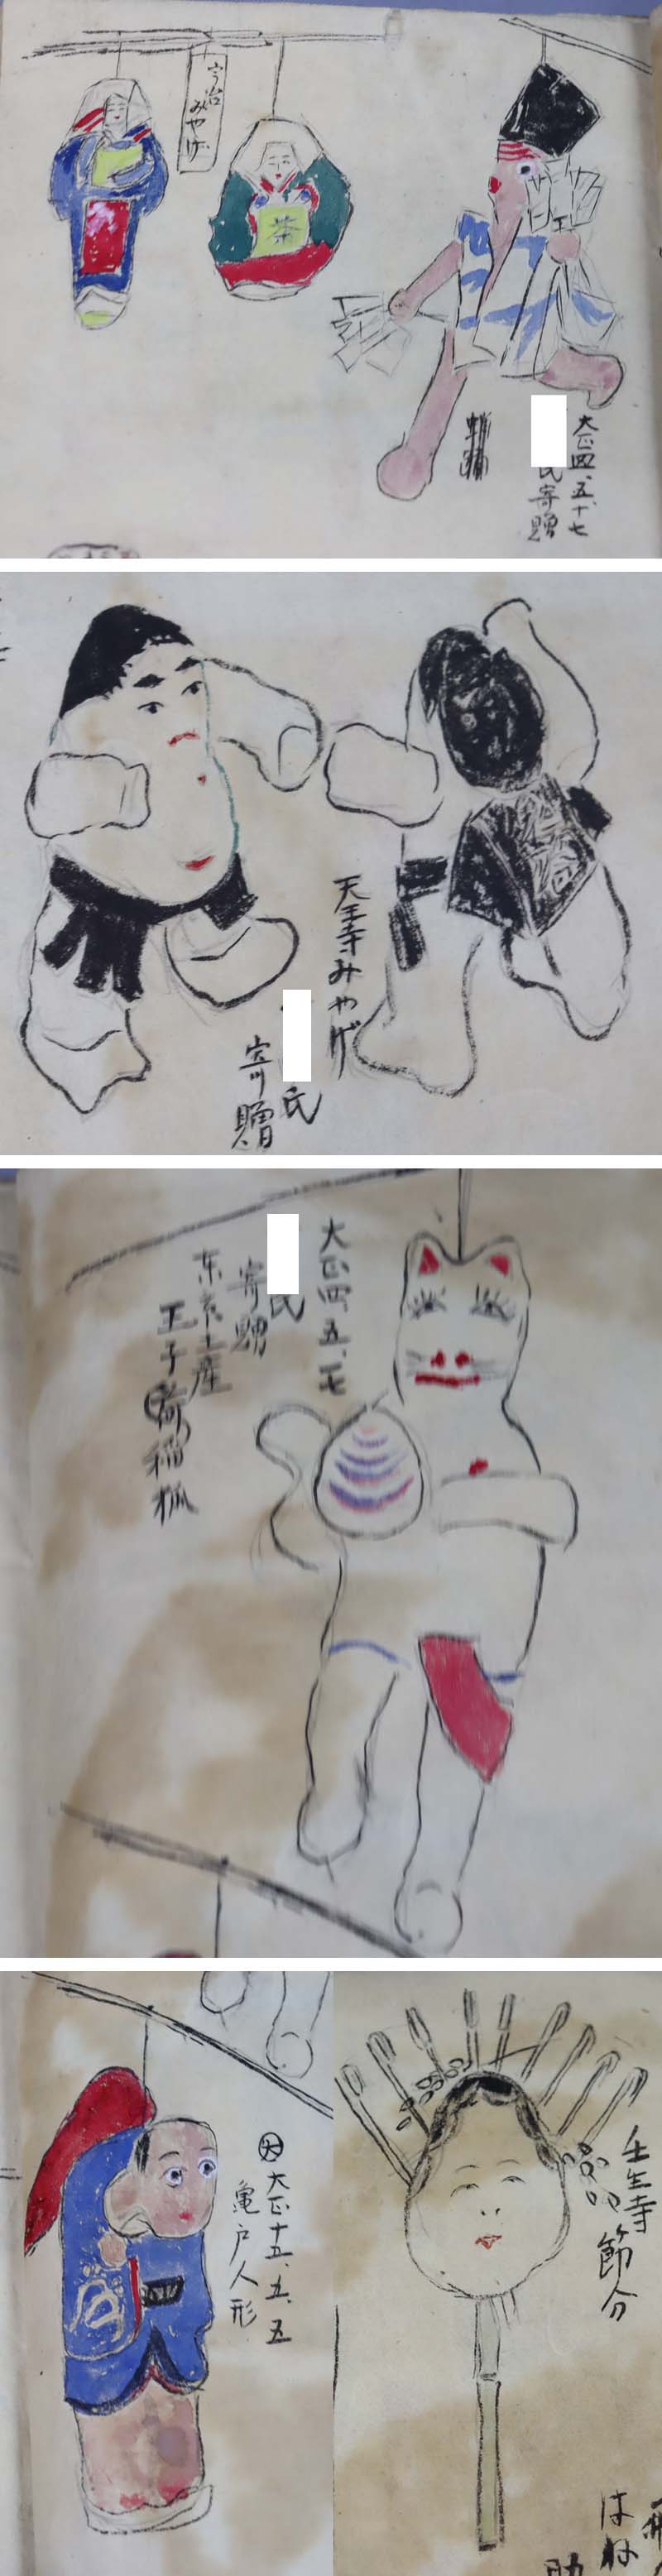 宇治
みやげ
茶
大正四、五、十七
氏寄贈
天王寺みやげ
氏
寄贈
大正四、五、十七
氏
寄贈
東京土産
王子(荷)稲狐
因大正十五、五、五
亀戸人形
壬生寺
節分
はね